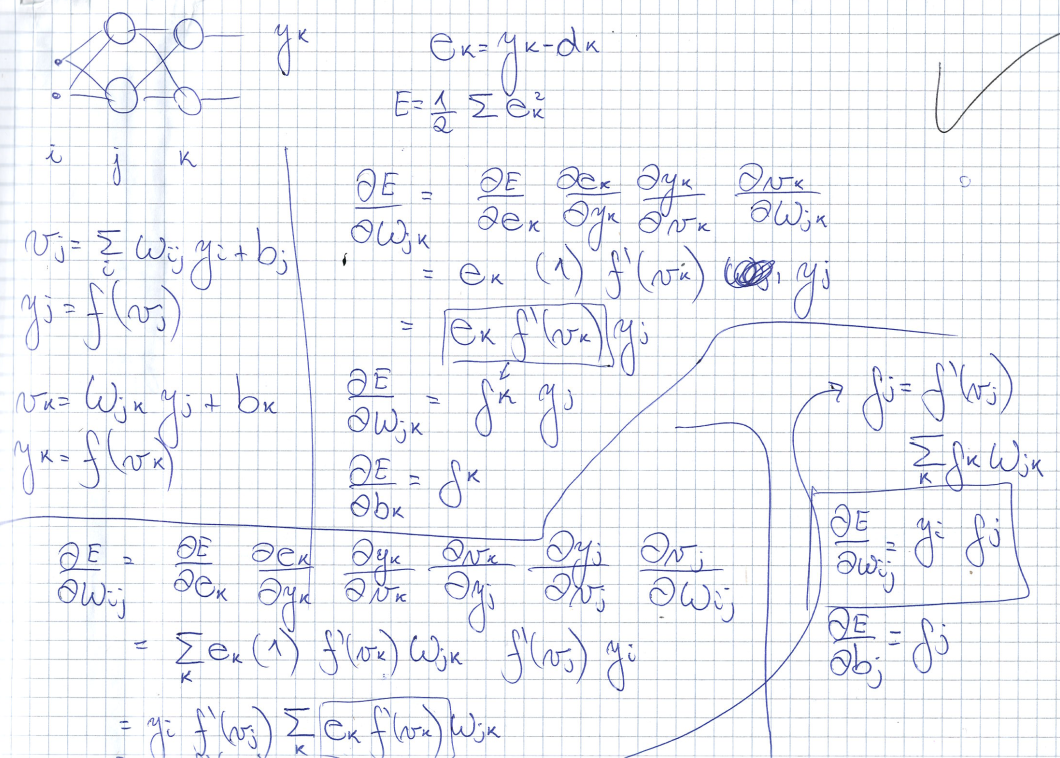 yₖ
eₖ = yₖ - dₖ
E = 1/2 Σ eₖ²
i j k
vⱼ = Σᵢ ωᵢⱼ yᵢ + bⱼ
yⱼ = f(vⱼ)
vₖ = ωⱼₖ yⱼ + bₖ
yₖ = f(vₖ)
∂E/∂ωⱼₖ = ∂E/∂eₖ ∂eₖ/∂yₖ ∂yₖ/∂vₖ ∂vₖ/∂ωⱼₖ
= eₖ (1) f'(vₖ) yⱼ
= eₖ f'(vₖ) yⱼ
∂E/∂ωⱼₖ = δₖ yⱼ
∂E/∂bₖ = δₖ
∂E/∂ωᵢⱼ = ∂E/∂eₖ ∂eₖ/∂yₖ ∂yₖ/∂vₖ ∂vₖ/∂yⱼ ∂yⱼ/∂vⱼ ∂vⱼ/∂ωᵢⱼ
= Σₖ eₖ (1) f'(vₖ) ωⱼₖ f'(vⱼ) yᵢ
= yᵢ f'(vⱼ) Σₖ eₖ f'(vₖ) ωⱼₖ
δⱼ = f'(vⱼ)
Σₖ δₖ ωⱼₖ
∂E/∂ωᵢⱼ = yᵢ δⱼ
∂E/∂bⱼ = δⱼ